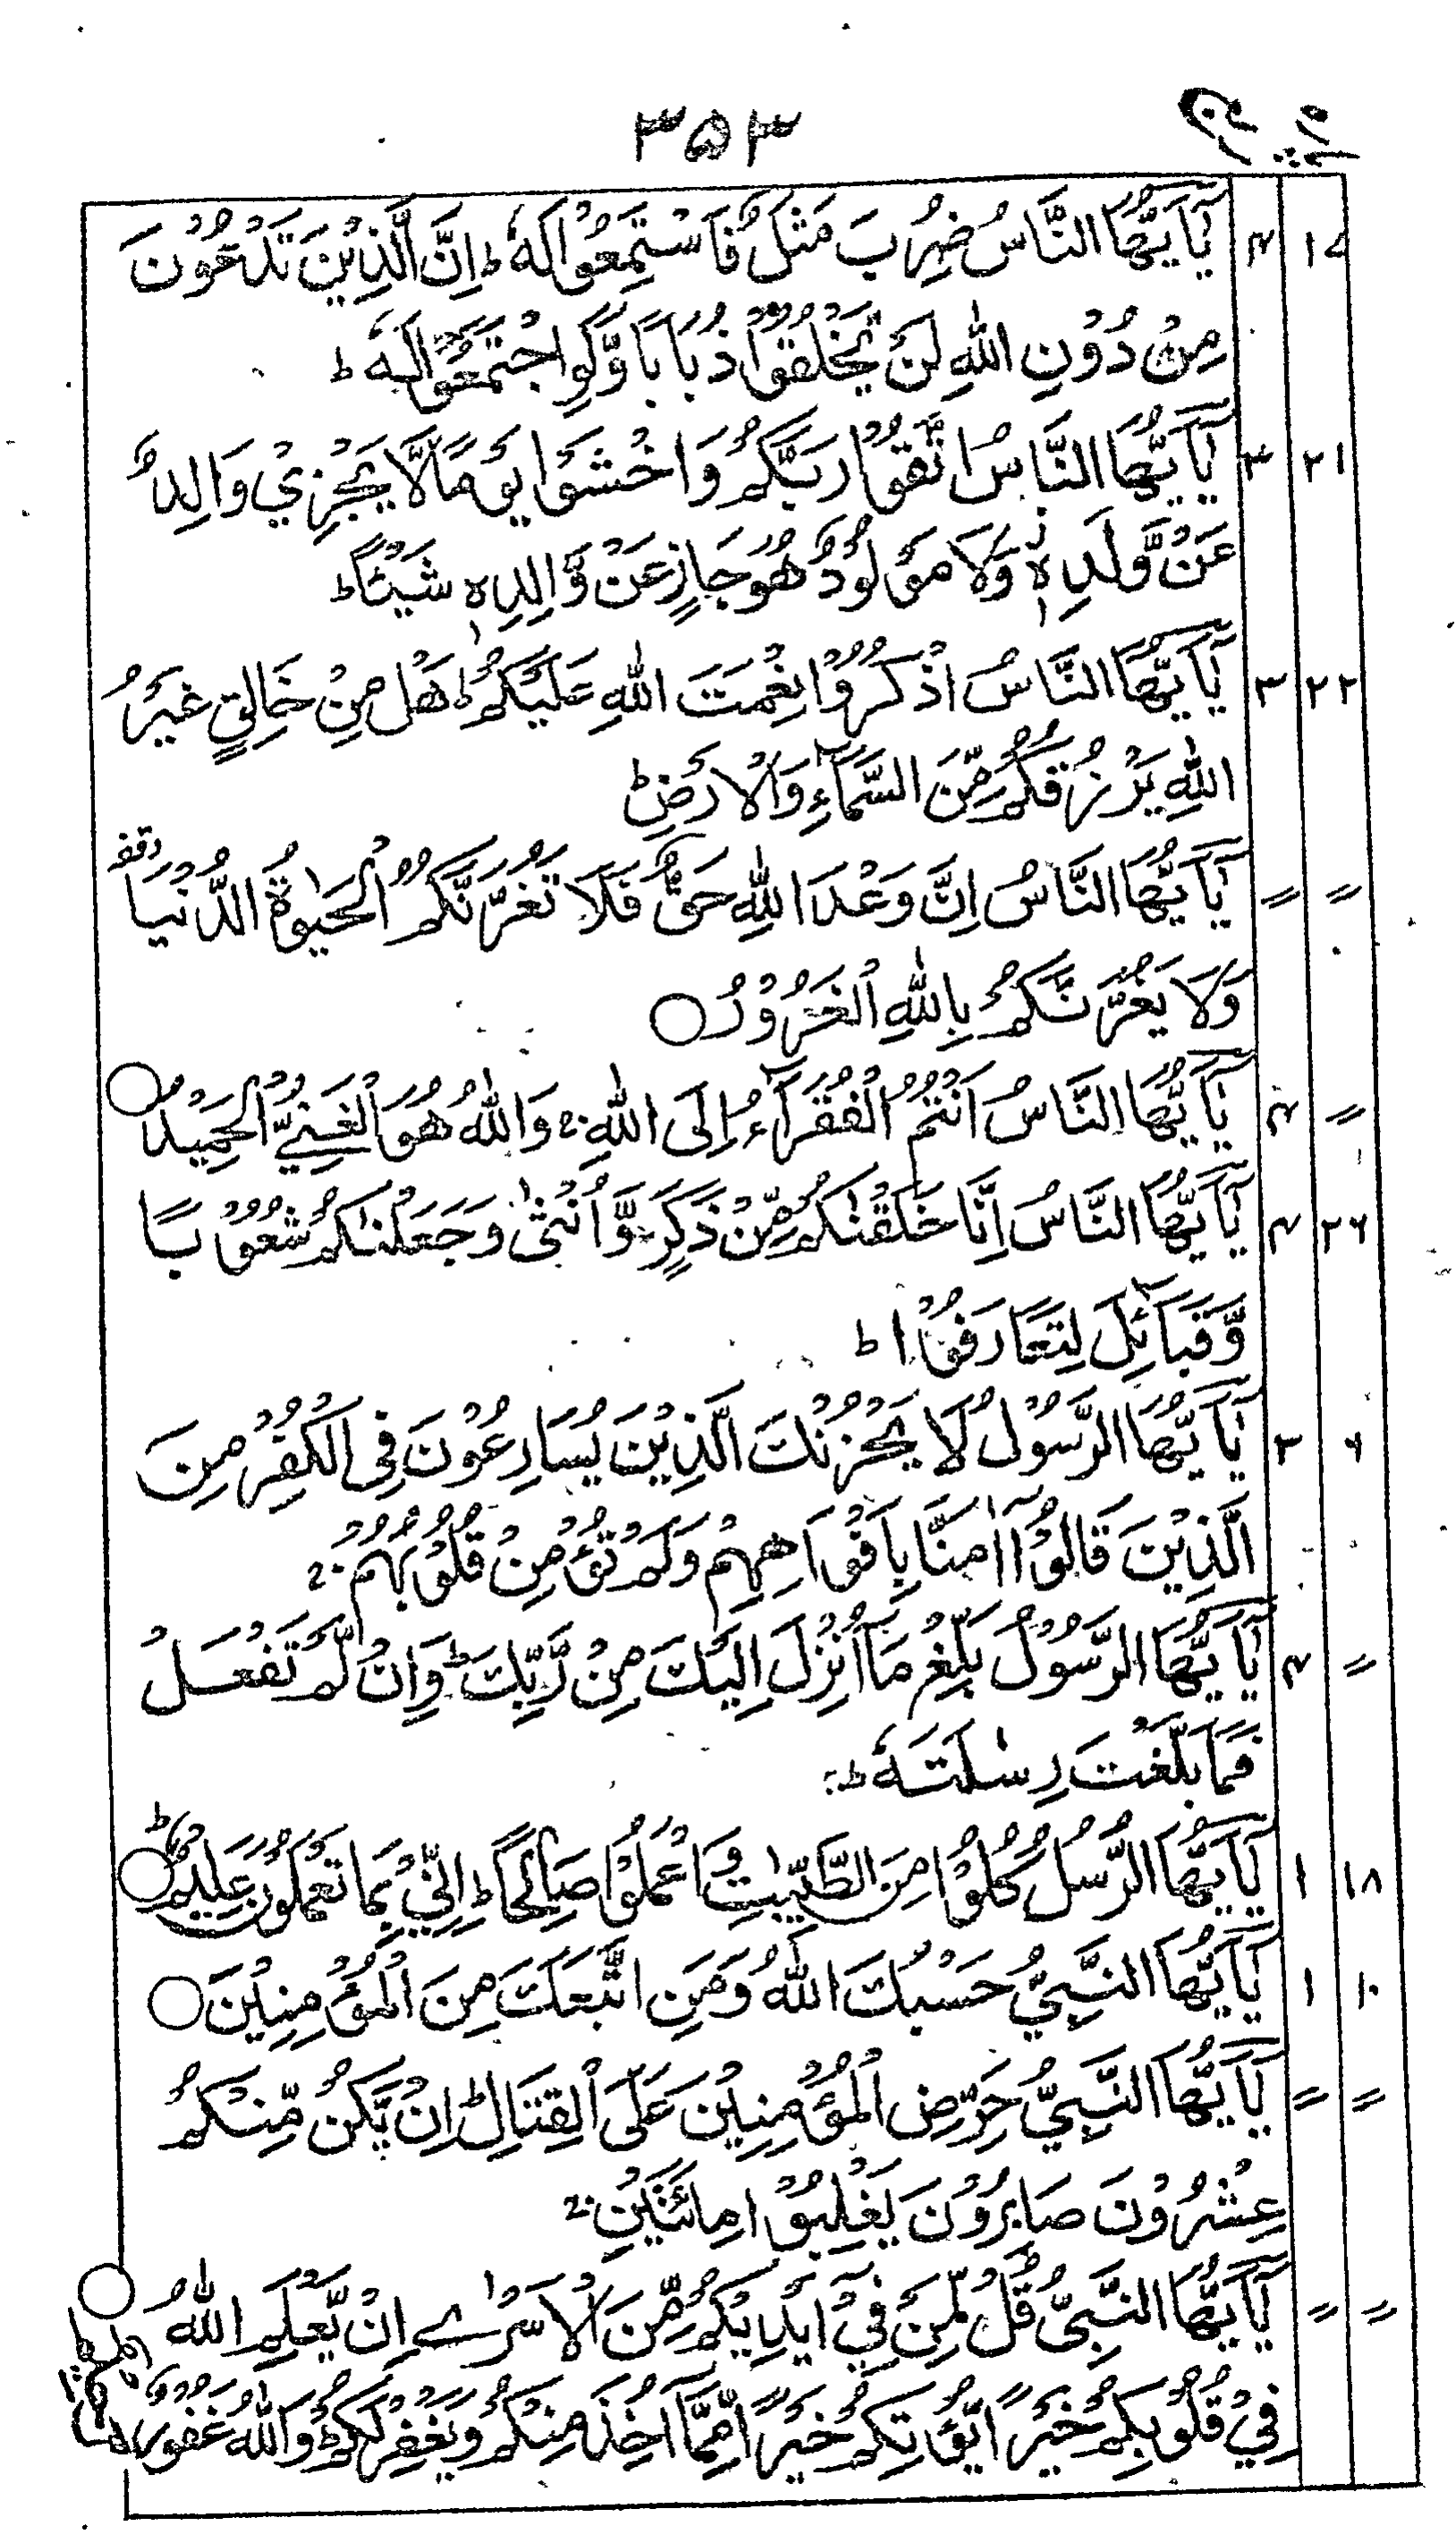 ۳۵۳
۱۷ ۴ يٰۤاَيُّهَا النَّاسُ ضُرِبَ مَثَلٌ فَاسْتَمِعُوْا لَهٗ ؕ اِنَّ الَّذِيْنَ تَدْعُوْنَ
مِنْ دُوْنِ اللّٰهِ لَنْ يَّخْلُقُوْا ذُبَابًا وَّلَوِ اجْتَمَعُوْا لَهٗ ؕ
۲۱ ۳ يٰۤاَيُّهَا النَّاسُ اتَّقُوْا رَبَّكُمْ وَاخْشَوْا يَوْمًا لَّا يَجْزِيْ وَالِدٌ
عَنْ وَّلَدِهٖ وَلَا مَوْلُوْدٌ هُوَ جَازٍ عَنْ وَّالِدِهٖ شَيْئًا ؕ
۲۲ ۳ يٰۤاَيُّهَا النَّاسُ اذْكُرُوْا نِعْمَتَ اللّٰهِ عَلَيْكُمْ ؕ هَلْ مِنْ خَالِقٍ غَيْرُ
اللّٰهِ يَرْزُقُكُمْ مِّنَ السَّمَآءِ وَالْاَرْضِ ؕ
〃 〃 يٰۤاَيُّهَا النَّاسُ اِنَّ وَعْدَ اللّٰهِ حَقٌّ فَلَا تَغُرَّنَّكُمُ الْحَيٰوةُ الدُّنْيَا وقفه
وَلَا يَغُرَّنَّكُمْ بِاللّٰهِ الْغَرُوْرُ ○
〃 ۴ يٰۤاَيُّهَا النَّاسُ اَنْتُمُ الْفُقَرَآءُ اِلَى اللّٰهِ ۚ وَاللّٰهُ هُوَ الْغَنِيُّ الْحَمِيْدُ ○
۲۶ ۴ يٰۤاَيُّهَا النَّاسُ اِنَّا خَلَقْنٰكُمْ مِّنْ ذَكَرٍ وَّاُنْثٰى وَجَعَلْنٰكُمْ شُعُوْبًا
وَّقَبَآئِلَ لِتَعَارَفُوْا ؕ
۶ ۳ يٰۤاَيُّهَا الرَّسُوْلُ لَا يَحْزُنْكَ الَّذِيْنَ يُسَارِعُوْنَ فِى الْكُفْرِ مِنَ
الَّذِيْنَ قَالُوْۤا اٰمَنَّا بِاَفْوَاهِهِمْ وَلَمْ تُؤْمِنْ قُلُوْبُهُمْ ۚ
〃 ۴ يٰۤاَيُّهَا الرَّسُوْلُ بَلِّغْ مَاۤ اُنْزِلَ اِلَيْكَ مِنْ رَّبِّكَ ؕ وَاِنْ لَّمْ تَفْعَلْ
فَمَا بَلَّغْتَ رِسٰلَتَهٗ ؕ
۱۸ ۱ يٰۤاَيُّهَا الرُّسُلُ كُلُوْا مِنَ الطَّيِّبٰتِ وَاعْمَلُوْا صَالِحًا ؕ اِنِّيْ بِمَا تَعْمَلُوْنَ عَلِيْمٌ ○
۱۰ ۱ يٰۤاَيُّهَا النَّبِيُّ حَسْبُكَ اللّٰهُ وَمَنِ اتَّبَعَكَ مِنَ الْمُؤْمِنِيْنَ ○
〃 〃 يٰۤاَيُّهَا النَّبِيُّ حَرِّضِ الْمُؤْمِنِيْنَ عَلَى الْقِتَالِ ؕ اِنْ يَّكُنْ مِّنْكُمْ
عِشْرُوْنَ صَابِرُوْنَ يَغْلِبُوْا مِائَتَيْنِ ۚ
〃 〃 يٰۤاَيُّهَا النَّبِيُّ قُلْ لِّمَنْ فِيْۤ اَيْدِيْكُمْ مِّنَ الْاَسْرٰۤے اِنْ يَّعْلَمِ اللّٰهُ
فِيْ قُلُوْبِكُمْ خَيْرًا يُّؤْتِكُمْ خَيْرًا مِّمَّاۤ اُخِذَ مِنْكُمْ وَيَغْفِرْ لَكُمْ ؕ وَاللّٰهُ غَفُوْرٌ